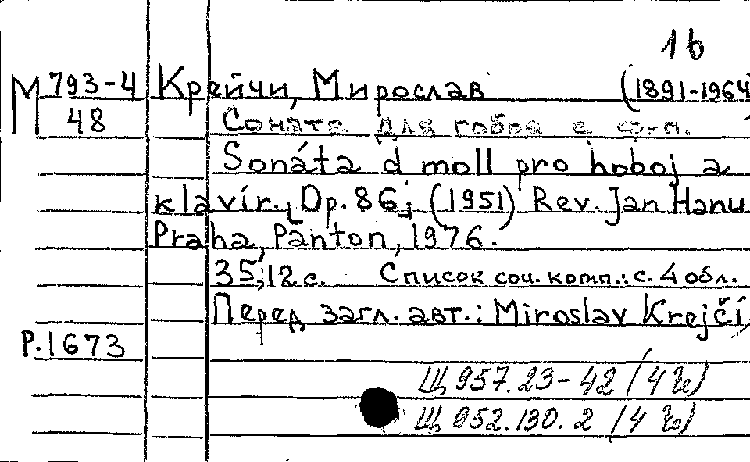 16
М 793-4 Крейчи, Мирослав (1891-1964
48 Соната для гобоя с ф-п.
Sonáta d moll pro hoboj a
klavír. Op. 86; (1951) Rev. Jan Hanu
Praha, Panton, 1976.
35, 12 с. Список соч. комп.: с. 4 обл.
Перед загл. авт.: Miroslav Krejčí
Р.1673
Щ 957.23-42
Щ 952.130.2